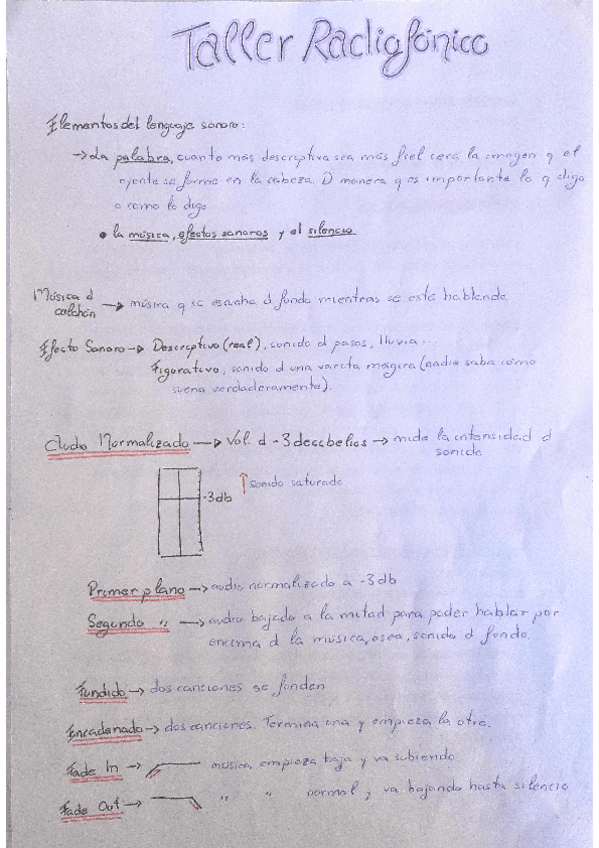 Taller Radiofónico
Elementos del lenguaje sonoro:
→ La palabra, cuanto más descriptiva sea más fiel será la imagen q el
oyente se forme en la cabeza. D manera q es importante lo q digo
o como lo digo
• la música, efectos sonoros y el silencio
Música d
colchón → música q se escucha d fondo mientras se está hablando.
Efecto Sonoro → Descriptivo (real), sonido d pasos, lluvia...
Figurativo, sonido d una varita mágica (nadie sabe cómo
suena verdaderamente).
Audio Normalizado → Vol. d -3 decibelios → mide la intensidad d
sonido
-3db ↑ sonido saturado
Primer plano → audio normalizado a -3 db
Segundo " → audio bajado a la mitad para poder hablar por
encima d la música, osea, sonido d fondo.
Fundido → dos canciones se funden
Encadenado → dos canciones. Termina una y empieza la otra.
Fade In → música, empieza baja y va subiendo
Fade Out → " " normal y va bajando hasta silencio